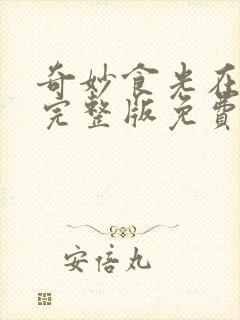 奇妙食光在
完整版免費
安倍丸